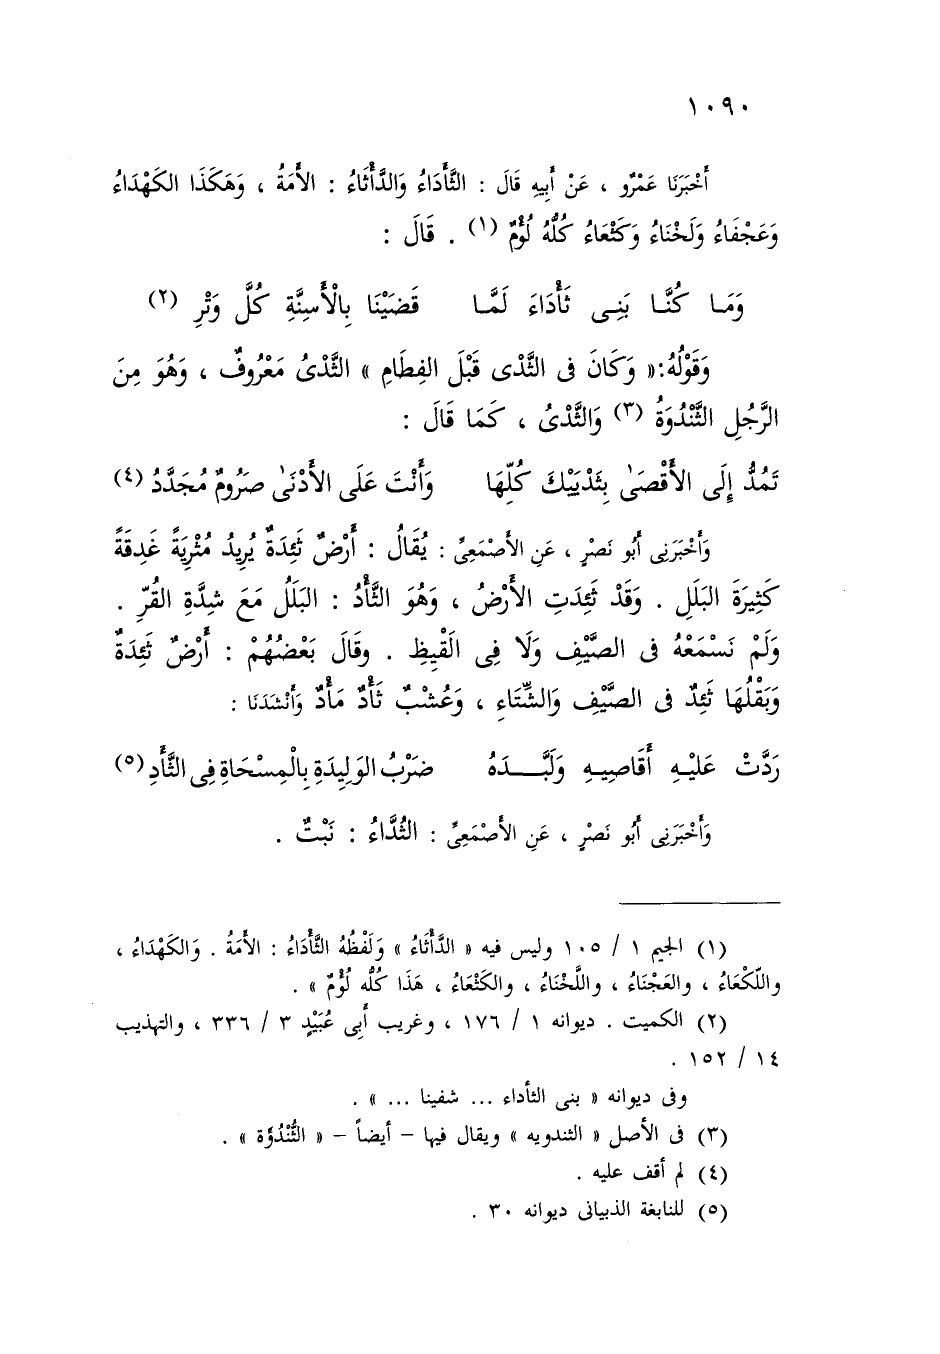 ١٠٩٠
أَخْبَرَنَا عَمْرٌو ، عَنْ أَبِيهِ قَالَ : الثَّأَدَاءُ وَالدَّأْثَاءُ : الأَمَةُ ، وَهَكَذَا الكَهْدَاءُ
وَعَجْفَاءُ وَلَخْنَاءُ وَكَثْعَاءُ كُلُّهُ لُؤْمٌ (١) . قَالَ :
وَمَـا كُنَّـا بَنِـى ثَأْدَاءَ لَمَّـا قَضَيْنَا بِالْأَسِنَّةِ كُلَّ وَتْرِ (٢)
وَقَوْلُهُ:« وَكَانَ فى الثَّدْى قَبْلَ الفِطَامِ » الثَّدْىُ مَعْرُوفٌ ، وَهُوَ مِنَ
الرَّجُلِ الثَّنْدُوَةُ (٣) وَالثَّدْىُ ، كَمَا قَالَ :
تَمُدُّ إِلَى الأَقْصَىٰ بِثَدْيَيْكَ كُلِّهَا وَأَنْتَ عَلَى الأَدْنَىٰ صَرُومٌ مُجَدَّدُ (٤)
وَأَخْبَرَنِى أَبُو نَصْرٍ ، عَنِ الأَصْمَعِىِّ : يُقَالُ : أَرْضٌ ثَئِدَةٌ يُرِيدُ مُثْرِيَةً غَدِقَةً
كَثِيرَةَ البَلَلِ . وَقَدْ ثَئِدَتِ الأَرْضُ ، وَهُوَ الثَّأَدُ : البَلَلُ مَعَ شِدَّةِ القُرِّ .
وَلَمْ نَسْمَعْهُ فى الصَّيْفِ وَلَا فِى الْقَيْظِ . وقَالَ بَعْضُهُمْ : أَرْضٌ ثَئِدَةٌ
وَبَقْلُهَا ثَئِدٌ فى الصَّيْفِ وَالشِّتَاءِ ، وَعُشْبٌ ثَأْدٌ مَأْدٌ وَأَنْشَدَنَا :
رَدَّتْ عَلَيْـهِ أَقَاصِيـهِ وَلَبَّـــدَهُ ضَرْبُ الوَلِيدَةِ بِالْمِسْحَاةِ فِى الثَّأَدِ (٥)
وَأَخْبَرَنِى أَبُو نَصْرٍ ، عَنِ الأَصْمَعِىِّ : الثُّدَّاءُ : نَبْتٌ .
(١) الجيم ١ / ١٠٥ وليس فيه « الدَّأْثَاءُ » وَلَفْظُهُ الثَّأَدَاءُ : الأَمَةُ . وَالكَهْدَاءُ ،
واللَّكْعَاءُ ، والعَجْنَاءُ ، واللَّخْنَاءُ ، والكَثْعَاءُ ، هَذَا كُلُّه لُؤْمٌ » .
(٢) الكميت . ديوانه ١ / ١٧٦ ، وغريب أَبِى عُبَيْدٍ ٣ / ٣٣٦ ، والتهذيب
١٤ / ١٥٢ .
وفى ديوانه « بنى الثأداء ... شفينا ... » .
(٣) فى الأصل « الثندويه » ويقال فيها – أيضاً – « الثُّنْدُؤَة » .
(٤) لم أقف عليه .
(٥) للنابغة الذبيانى ديوانه ٣٠ .